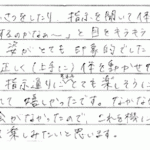 さつをしたり、指示を聞いて体
するのかなぁ〜」と目をキラキラ
姿がとても印象的でした
正しく(上手に)体を動かせ
指示通りにとても楽しそうに
て嬉しかったです。なかなか
会がなかったので、これを機に
楽しみたいと思います。